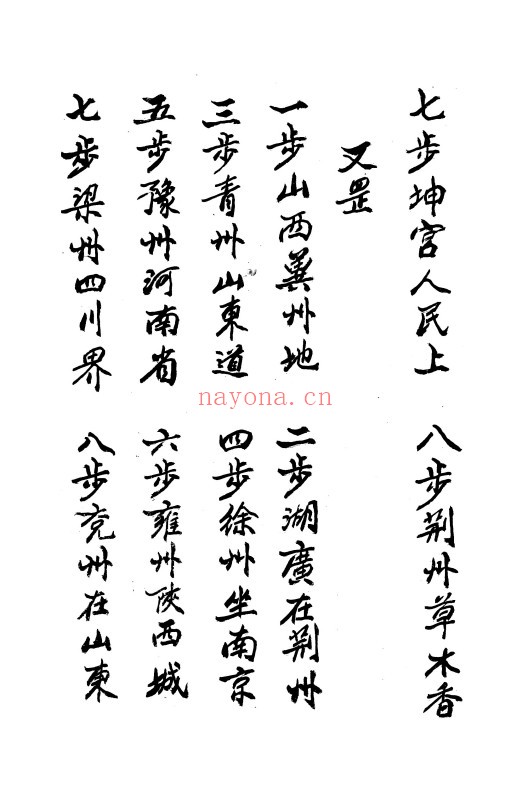 七步坤宮人民上 八步荆州草木香
又罡
一步山西冀州地 二步湖廣在荆州
三步青州山東道 四步徐州坐南京
五步豫州河南省 六步雍州陜西城
七步梁州四川界 八步兖州在山東
nayona.cn